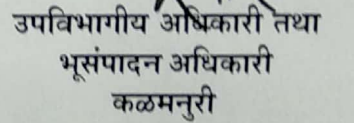 उपविभागीय अधिकारी तथा
भूसंपादन अधिकारी
कळमनुरी